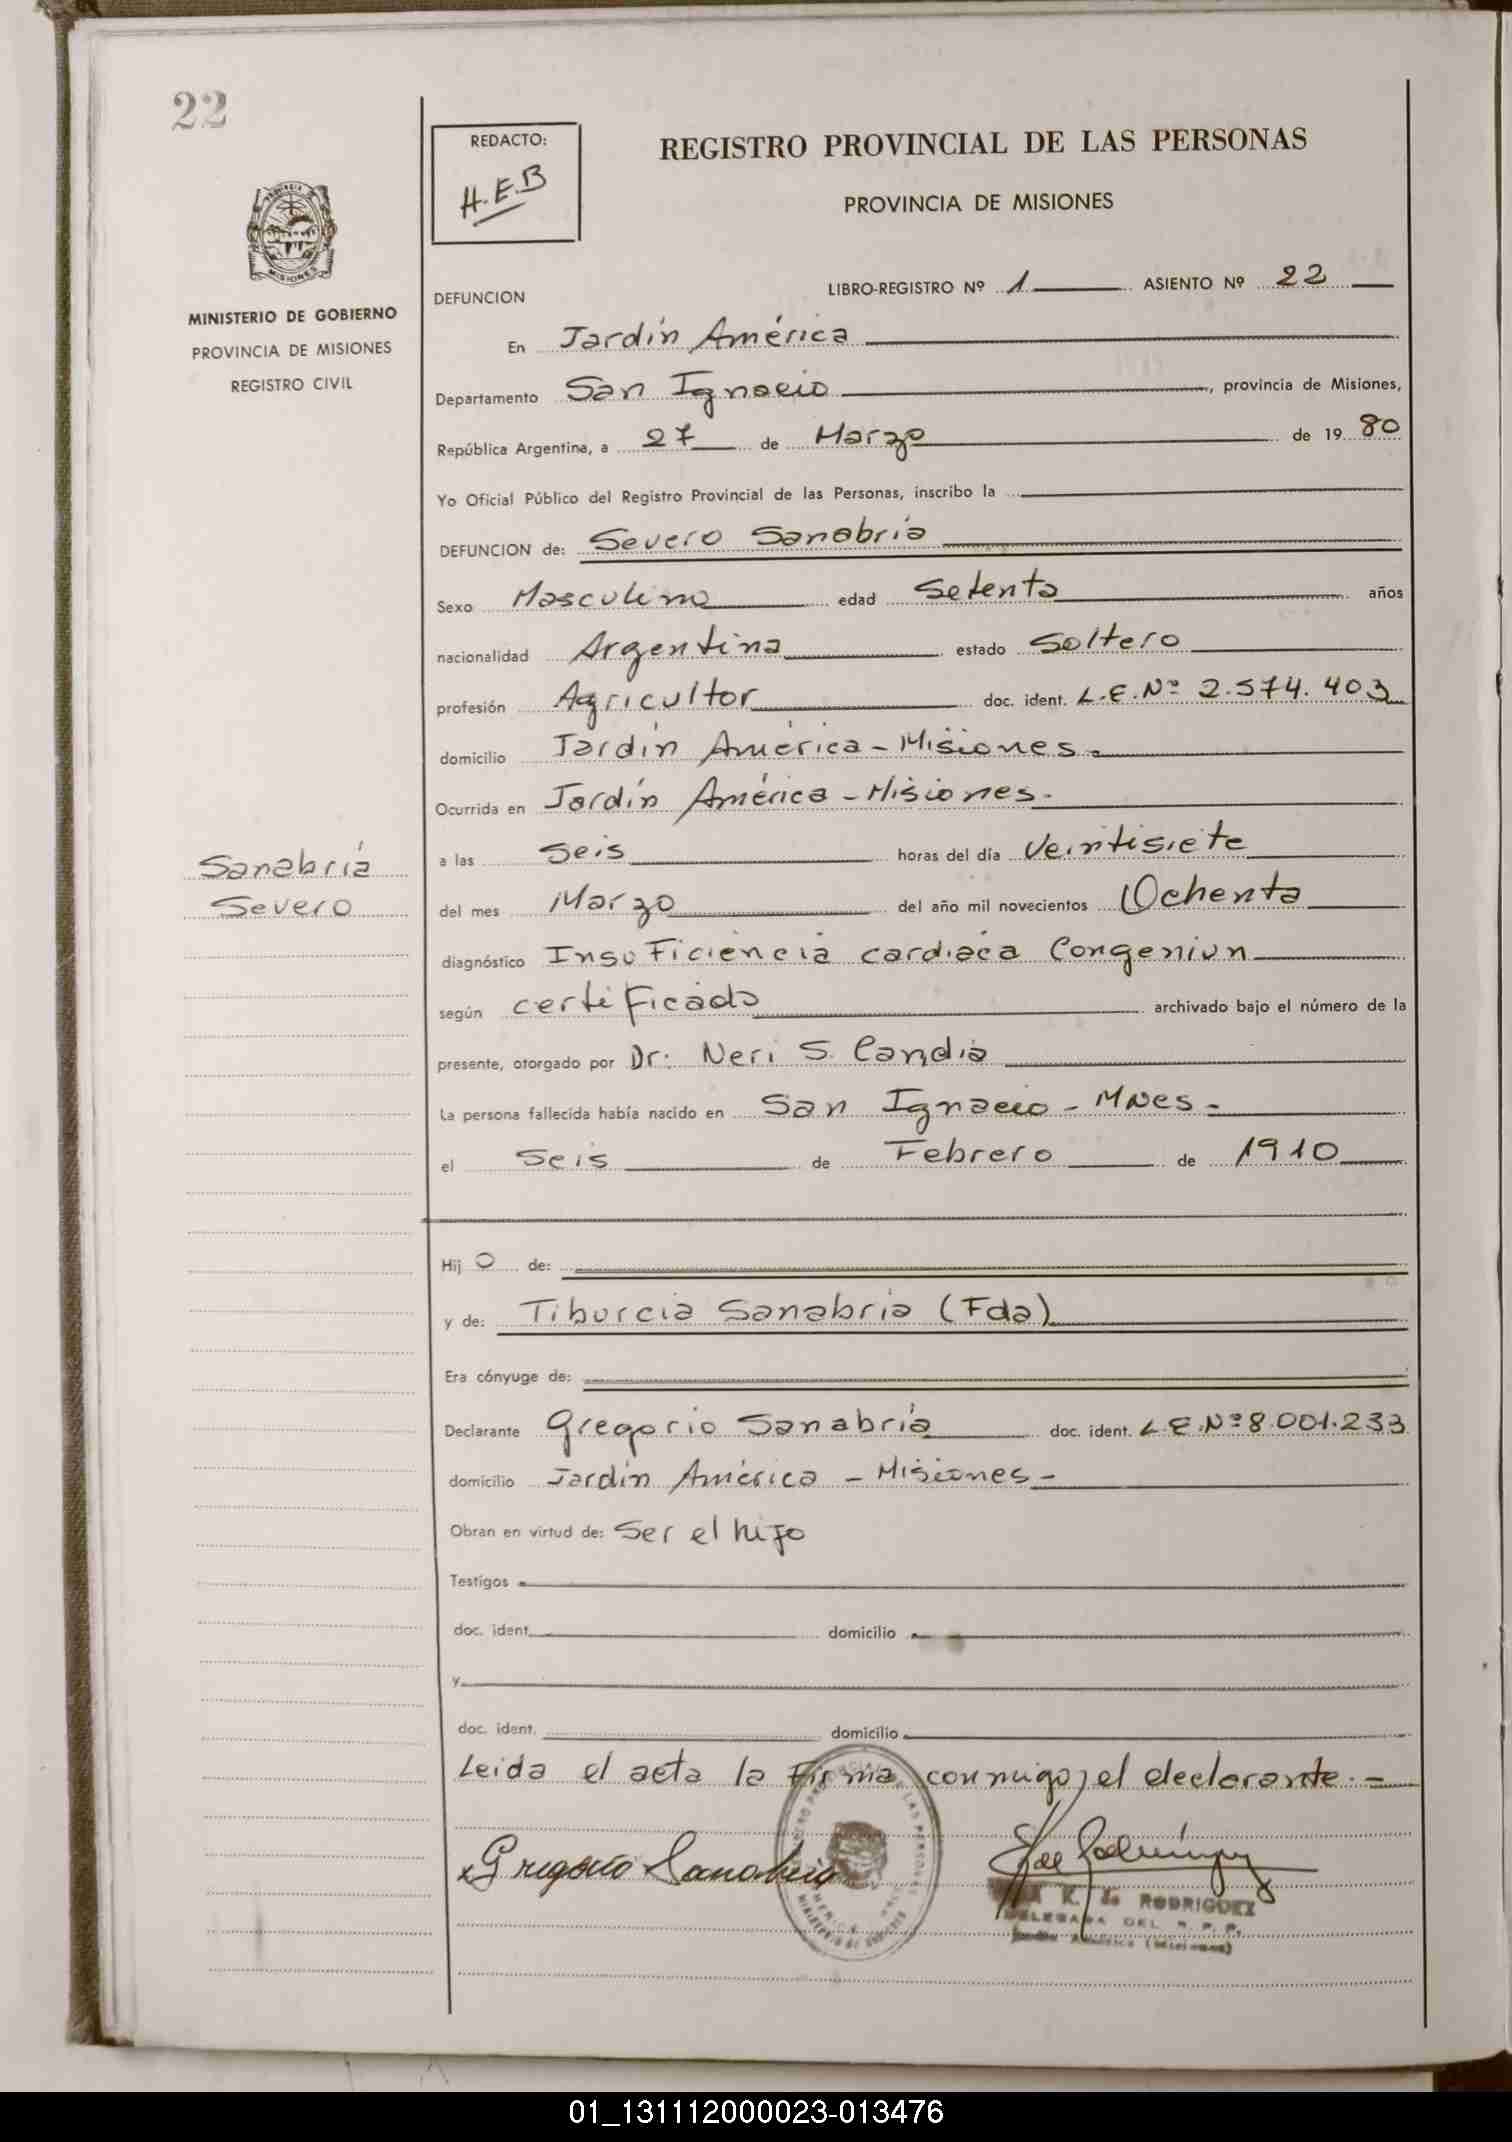 22
REDACTO:
H.E.B
REGISTRO PROVINCIAL DE LAS PERSONAS
PROVINCIA DE MISIONES
MISIONES
MINISTERIO DE GOBIERNO
PROVINCIA DE MISIONES
REGISTRO CIVIL
DEFUNCION
LIBRO-REGISTRO Nº 1 ASIENTO Nº 22
En Jardín América
Departamento San Ignacio, provincia de Misiones,
República Argentina, a 27 de Marzo de 1980
Yo Oficial Público del Registro Provincial de las Personas, inscribo la
DEFUNCION de: Severo Sanabria
Sexo Masculino edad Setenta años
nacionalidad Argentina estado Soltero
profesión Agricultor doc. ident. L.E.Nº 2.574.403
domicilio Jardín América - Misiones -
Ocurrida en Jardín América - Misiones -
Sanabria
Severo
a las Seis horas del día Veintisiete
del mes Marzo del año mil novecientos Ochenta
diagnóstico Insuficiencia cardiaca Congeniun
según certificado archivado bajo el número de la
presente, otorgado por Dr: Neri S. Candia
La persona fallecida había nacido en San Ignacio - MNes -
el Seis de Febrero de 1910
Hijo de:
y de: Tiburcia Sanabria (Fda)
Era cónyuge de:
Declarante Gregorio Sanabria doc. ident. L.E.Nº 8.001.233
domicilio Jardín América - Misiones -
Obran en virtud de: Ser el hijo
Testigos
doc. ident. domicilio
y
doc. ident. domicilio
Leida el acta la Firma conmigo, el declarante. -
Gregorio Sanabria
K. de RODRIGUEZ
DELEGADA DEL R. P. P.
Jardín América (Misiones)
01_131112000023-013476